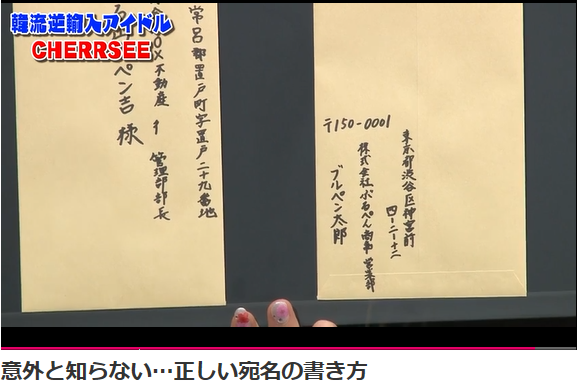 韓流逆輸入アイドル
CHERRSEE
常呂郡置戸町字置戸二十九番地
OX不動産
管理部部長
ペン吉 様
〒150-0001
東京都渋谷区神宮前
四-二-十二
株式会社ぶるぺん商事 営業部
ブルペン太郎
意外と知らない…正しい宛名の書き方